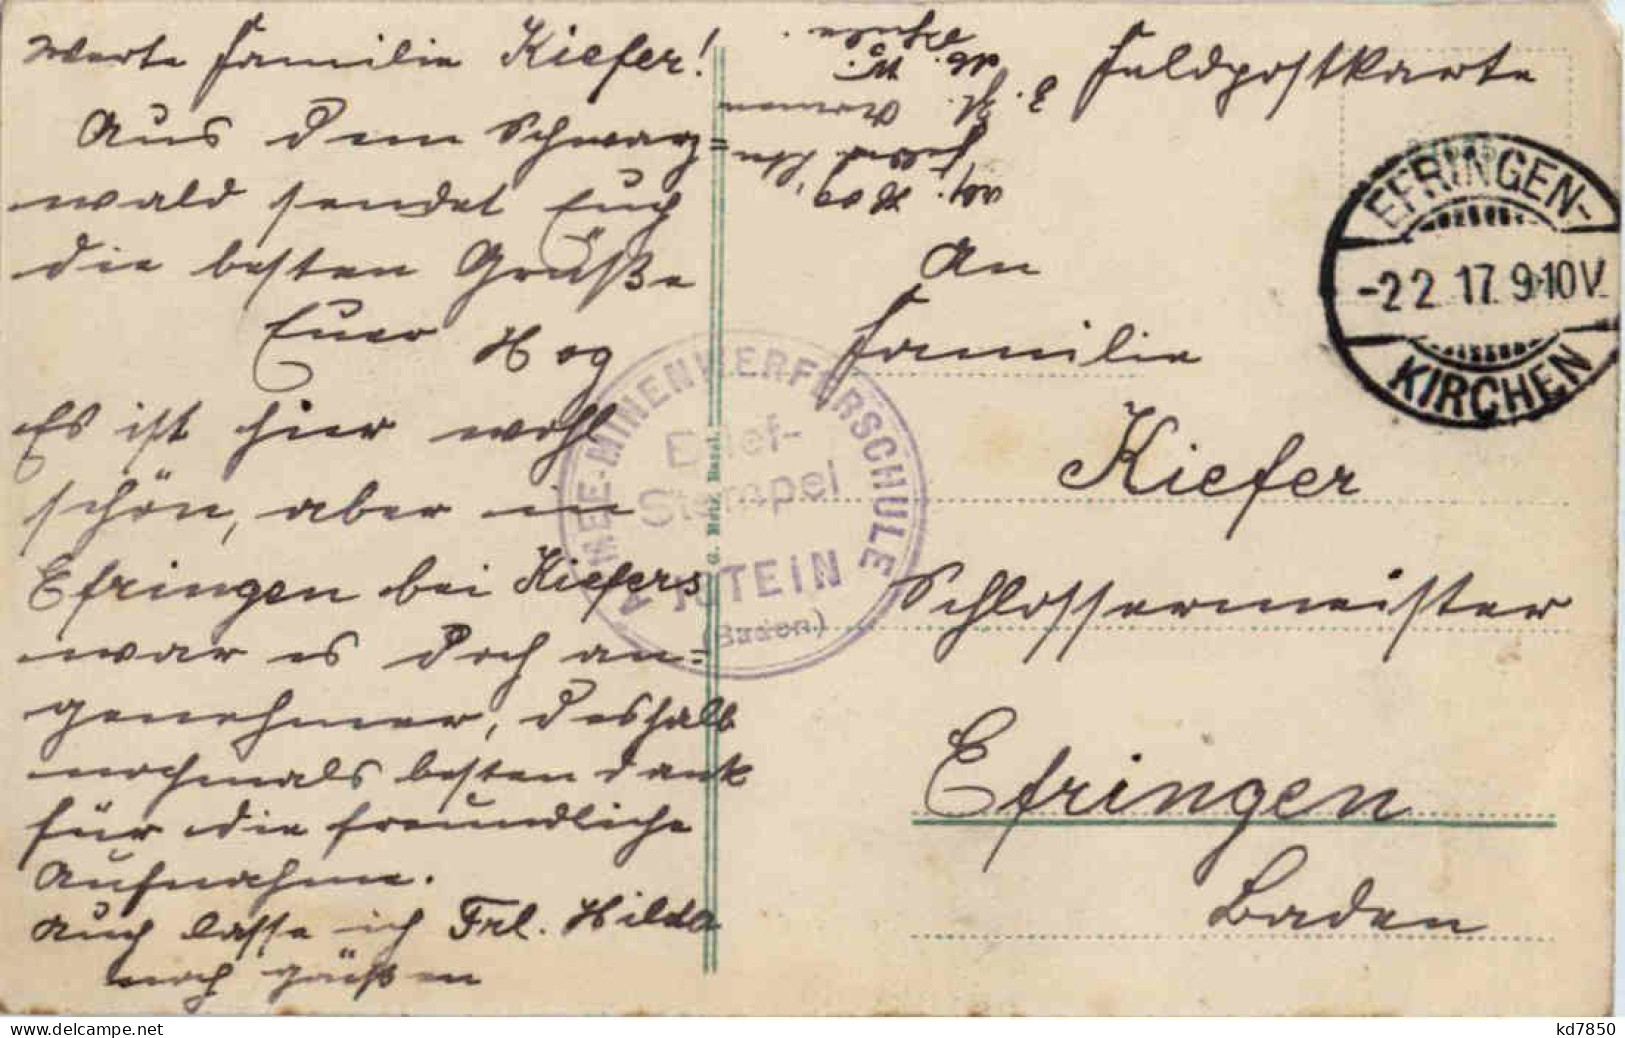 Werte Familie Kiefer!
Aus dem Schwarz=
wald sendet Euch
die besten Grüße
Euer Hog
Es ist hier wohl
schön, aber in
Efringen bei Kiefers
war es doch an=
genehmer, deshalb
nochmals besten Dank
für die freundliche
Aufnahme.
Auch lasse ich Frl. Hilda
noch grüßen
Feldpostkarte
An
Familie
Kiefer
Schlossermeister
Efringen
Baden
EFRINGEN-
-2 2 17. 9-10V.
KIRCHEN
ARMEE-MINENWERFERSCHULE
Brief-
Stempel
ISTEIN
(Baden)
G. Metz, Basel.
kd7850